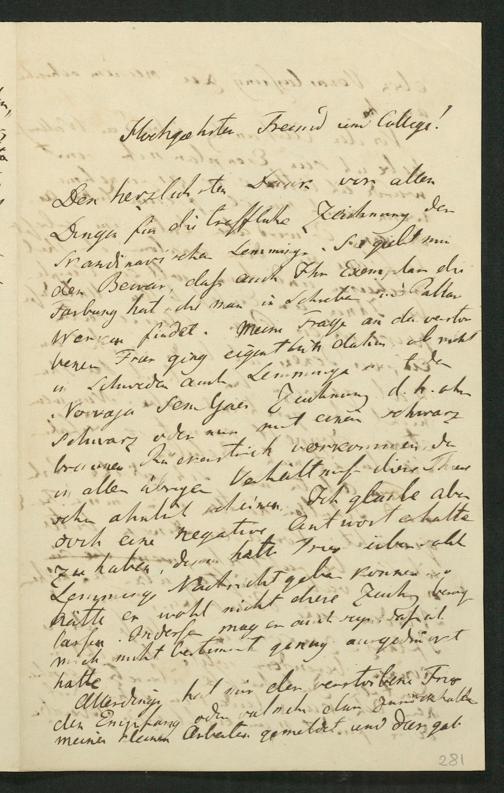 Hochgeehrter Freund und College!
Den herzlichsten Dank vor allen
Dingen für die treffliche Zeichnung der
Skandinavischen Lemminge. Sie giebt mir
den Beweis, daß auch Ihr Exemplar die
Färbung hat die man in Schreber und Pallas
Werken findet. Meine Frage an den verstor
benen Fries ging eigentlich dahin ob nicht
in Schweden auch Lemminge mit der
Novaja Semljaer Zeichnung d. h. ohne
schwarz oder nur mit einem schwarz
braunen Rückenstrich vorkommen, da
in allen übrigen Verhältnissen diese Thiere
sehr ähnlich scheinen. Ich glaube aber
doch eine negative Antwort erhalten
zu haben, denn hätte Fries über
Lemminge Nachricht geben können so
hätte er wohl nicht diese Zeichnung
lassen. Indessen mag
mich nicht bestimmt genug ausgedrückt
hatte
Allerdings hat mir der verstorbene Fries
den Empfang oder
meiner kleinen Arbeiten gemeldet und
281